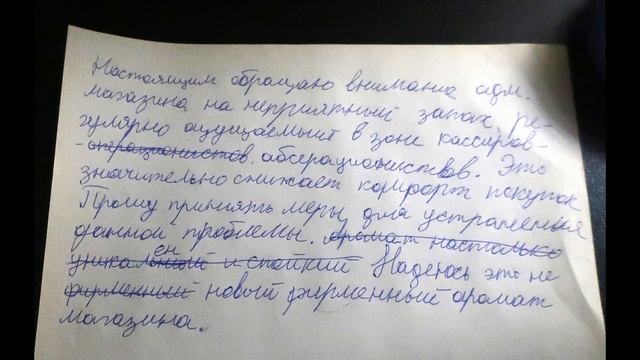 Настоящим обращаю внимание адм.
магазина на неприятный запах ре-
гулярно ощущаемый в зоне кассиров-
-операционистов. абсерационистов. Это
значительно снижает комфорт покупок
Прошу принять меры для устранения
данной проблемы. аромат настолько
уникальный и стойкий Надеюсь это не
фирменный новый фирменный аромат
магазина.